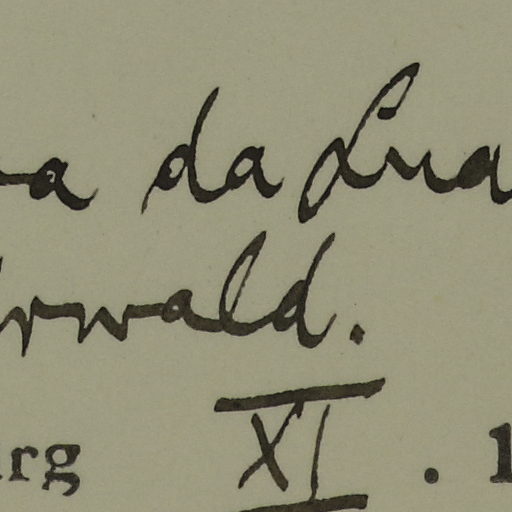 a da Lua
rwald.
rg XI . 1